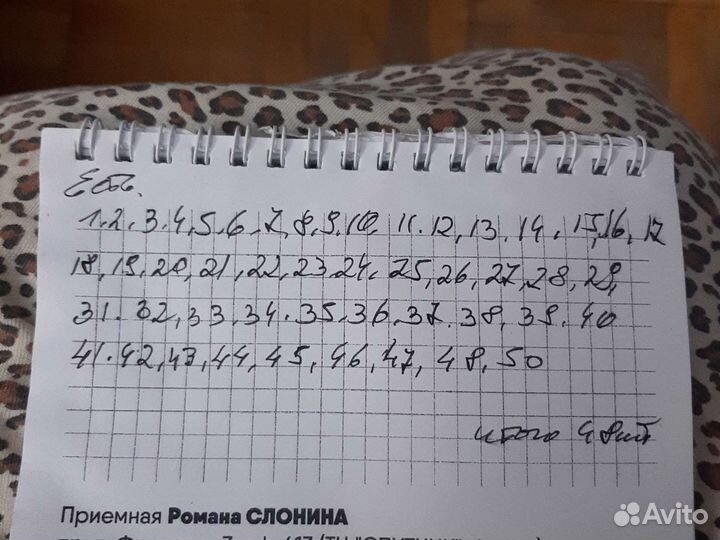 Есть.
1.2.3.4,5.6.7,8,9.10, 11.12,13.14.15,16,17
18,19,20,21,22,23.24.25,26,27,28,29,
31.32,33.34.35.36.37.38,39.40
41.42,43,44,45,46,47,48,50
итого 48шт
Приемная Романа СЛОНИНА
Avito